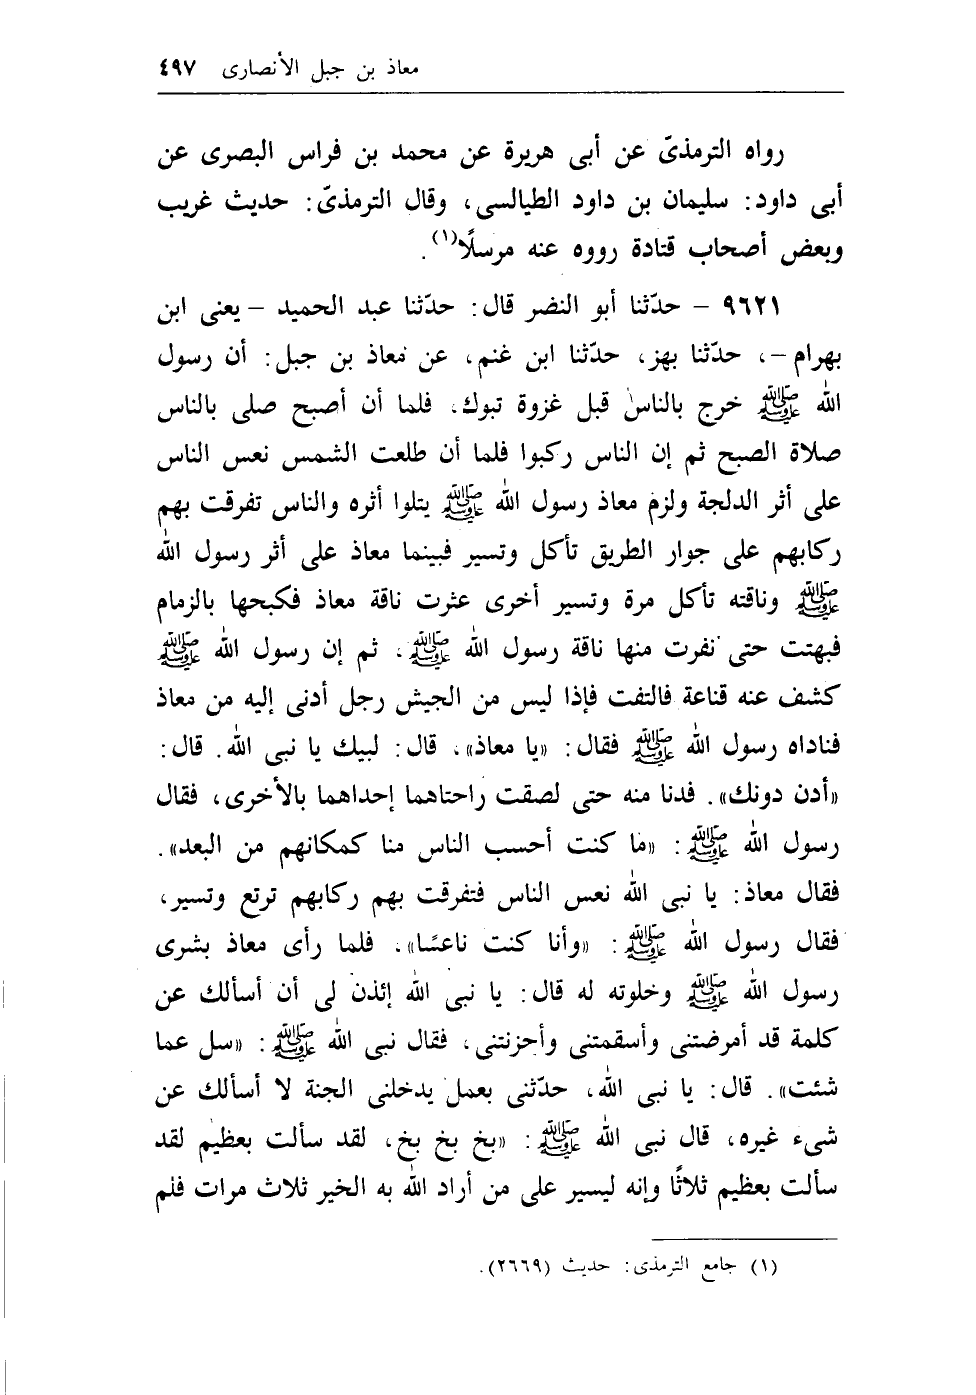 معاذ بن جبل الأنصارى ٤٩٧
رواه الترمذىّ عن أبى هريرة عن محمد بن فراس البصرى عن
أبى داود: سليمان بن داود الطيالسى، وقال الترمذىّ: حديث غريب
وبعض أصحاب قتادة رووه عنه مرسلًا(١).
٩٦٢١ – حدّثنا أبو النضر قال: حدّثنا عبد الحميد – يعنى ابن
بهرام –، حدّثنا بهز، حدّثنا ابن غنم، عن معاذ بن جبل: أن رسول
الله ﷺ خرج بالناس قبل غزوة تبوك، فلما أن أصبح صلى بالناس
صلاة الصبح ثم إن الناس ركبوا فلما أن طلعت الشمس نعس الناس
على أثر الدلجة ولزم معاذ رسول الله ﷺ يتلوا أثره والناس تفرقت بهم
ركابهم على جوار الطريق تأكل وتسير فبينما معاذ على أثر رسول الله
ﷺ وناقته تأكل مرة وتسير أخرى عثرت ناقة معاذ فكبحها بالزمام
فبهتت حتى نفرت منها ناقة رسول الله ﷺ، ثم إن رسول الله ﷺ
كشف عنه قناعة فالتفت فإذا ليس من الجيش رجل أدنى إليه من معاذ
فناداه رسول الله ﷺ فقال: «يا معاذ»، قال: لبيك يا نبى الله. قال:
«أدن دونك». فدنا منه حتى لصقت راحتاهما إحداهما بالأخرى، فقال
رسول الله ﷺ: «ما كنت أحسب الناس منا كمكانهم من البعد».
فقال معاذ: يا نبى الله نعس الناس فتفرقت بهم ركابهم ترتع وتسير،
فقال رسول الله ﷺ: «وأنا كنت ناعسًا»، فلما رأى معاذ بشرى
رسول الله ﷺ وخلوته له قال: يا نبى الله إئذن لى أن أسألك عن
كلمة قد أمرضتنى وأسقمتنى وأحزنتنى، فقال نبى الله ﷺ: «سل عما
شئت». قال: يا نبى الله، حدّثنى بعمل يدخلنى الجنة لا أسألك عن
شىء غيره، قال نبى الله ﷺ: «بخ بخ بخ، لقد سألت بعظيم لقد
سألت بعظيم ثلاثًا وإنه ليسير على من أراد الله به الخير ثلاث مرات فلم
(١) جامع الترمذى: حديث (٢٦٦٩).